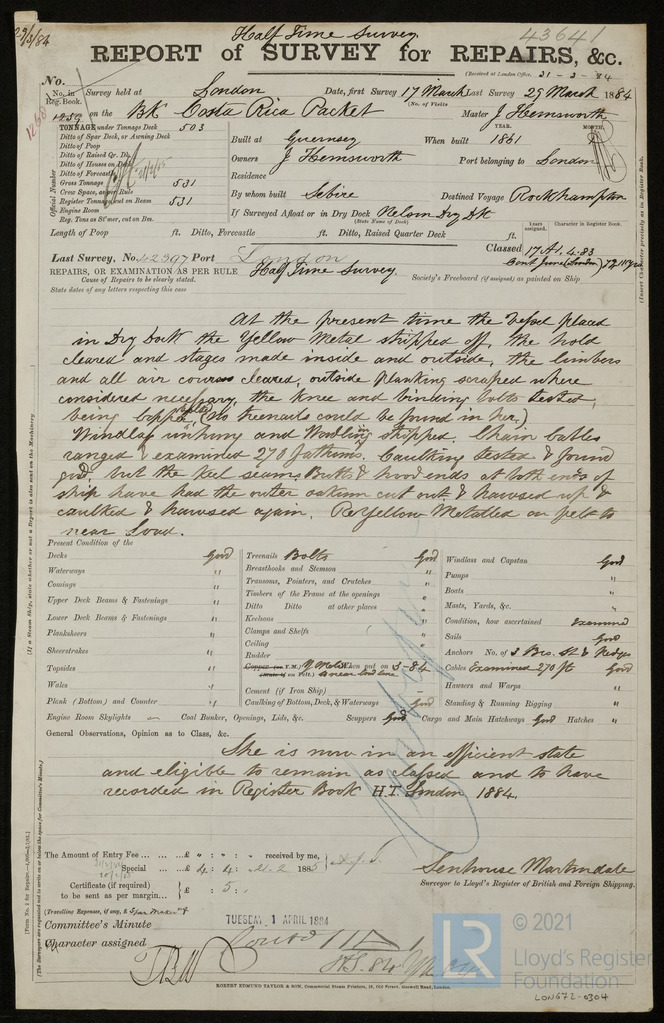 29/3/84
Half Time Survey
43641
REPORT of SURVEY for REPAIRS, &c.
(Received at London Office, 31-3-84
No.
No. in Reg. Book. Survey held at London Date, first Survey 17 March Last Survey 29 March 1884
(No. of Visits)
1259 on the Bk Costa Rica Packet Master J Hemsworth
1268
TONNAGE under Tonnage Deck 503
Ditto of Spar Deck, or Awning Deck
Ditto of Poop
Ditto of Raised Qr. Dk.
Ditto of Houses on Deck
Ditto of Forecastle
Gross Tonnage 531
Crew Space, as per Rule
Register Tonnage cut on Beam 531
Engine Room
Reg. Tons as St'mer, cut on Bm.
Official Number
YEAR. MONTH.
Built at Guernsey When built 1861
Owners J Hemsworth Port belonging to London
Residence
By whom built Sebire Destined Voyage Rockhampton
If Surveyed Afloat or in Dry Dock Nelson Dry Dk
(State Name of Dock.)
Years assigned. Character in Register Book.
Length of Poop ft. Ditto, Forecastle ft. Ditto, Raised Quarter Deck ft.
Classed 17 A1. 4.83
Cont June (London) 72 11 Yrs
Last Survey, No. 42397 Port London
REPAIRS, OR EXAMINATION AS PER RULE Half Time Survey.
Cause of Repairs to be clearly stated. Society's Freeboard (if assigned) as painted on Ship
State dates of any letters respecting this case
At the present time the Vessel placed
in Dry Dock the Yellow Metal stripped off, the hold
cleared and stages made inside and outside, the limbers
and all air courses cleared, outside planking scraped where
considered necessary, the knee and binding bolts tested,
being bolted (No treenails could be found in her.)
Windlass unhung and Woodlining stripped. Chain cables
ranged & examined 270 fathoms. Caulking tested & found
good but the keel seam. Butts & hood ends at both ends of
ship have had the outer oakum cut out & hawsed up &
caulked & hawsed again. Re yellow Metalled on felt to
near Load.
Present Condition of the
Decks Good
Waterways "
Comings "
Upper Deck Beams & Fastenings "
Lower Deck Beams & Fastenings "
Planksheers "
Sheerstrakes "
Topsides "
Wales "
Plank (Bottom) and Counter "
Treenails Bolts Good
Breasthooks and Stemson "
Transoms, Pointers, and Crutches "
Timbers of the Frame at the openings "
Ditto Ditto at other places "
Keelsons "
Clamps and Shelfs "
Ceiling "
Rudder "
Copper (or Y.M.) Y. Metal When put on 3-84
(State if on Felt.) to near load line
Cement (if Iron Ship)
Caulking of Bottom, Deck, & Waterways Good
Windlass and Capstan Good
Pumps "
Boats "
Masts, Yards, &c. "
Condition, how ascertained Examined
Sails Good
Anchors No. of 3 Bro. St. & Kedges
Cables Examined 270 ft Good
Hawsers and Warps "
Standing & Running Rigging "
Engine Room Skylights — Coal Bunker, Openings, Lids, &c. Scuppers Good Cargo and Main Hatchways Good Hatches "
General Observations, Opinion as to Class, &c.
She is now in an efficient state
and eligible to remain as classed and to have
recorded in Register Book H.T. London 1884.
The Amount of Entry Fee ... ... ... £ " : " : " received by me,
Special ... £ 4 : 4 : 21.2 1885
Certificate (if required) to be sent as per margin ... £ : 5 :
(Travelling Expenses, if any, £
Senhouse Martindale
Surveyor to Lloyd's Register of British and Foreign Shipping.
Committee's Minute TUESDAY 1 APRIL 1884
Character assigned
H.T. 84
ROBERT EDMUND TAYLOR & SON, Commercial Steam Printers, 19, Old Street, Goswell Road, London.
(If a Steam Ship, state whether or not a Report is also sent on the Machinery.
(Insert Character precisely as in Register Book.
(The Surveyors are requested not to write on or below the space for Committee's Minute.)
LR
© 2021
Lloyd's Register
Foundation
LON672-0304